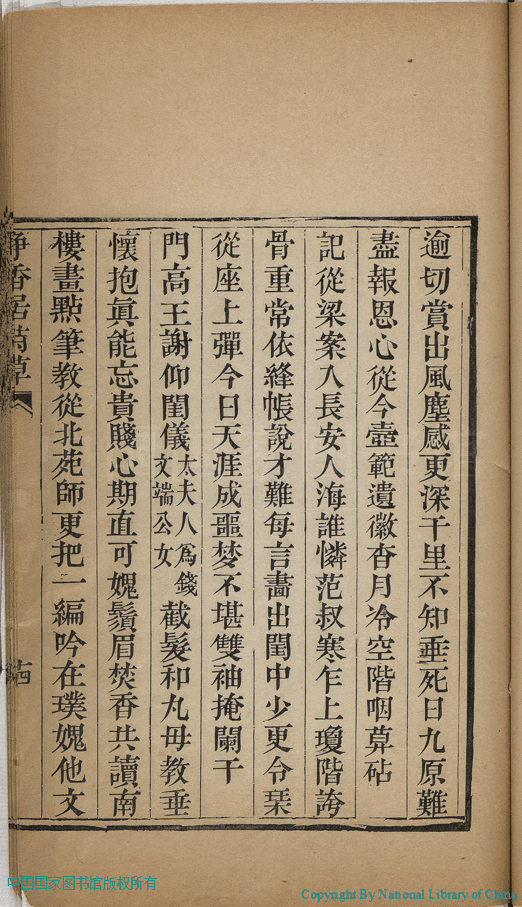 逾切賞出風塵感更深千里不知垂死日九原難
盡報恩心從今壼範遺徽杳月冷空階咽莫砧
記從梁案入長安人海誰憐范叔寒乍上瓊階誇
骨重常依絳帳說才難每言畵出閨中少更令琹
從座上彈今日天涯成噩夢不堪雙袖掩闌干
門高王謝仰閨儀太夫人爲錢文端公女截髮和丸母教垂
懷抱眞能忘貴賤心期直可媿鬚眉焚香共讀南
樓畫點筆教從北苑師更把一編吟在璞媿他文
淨香居詩草
十四
中国国家图书馆版权所有
Copyright By National Library of China